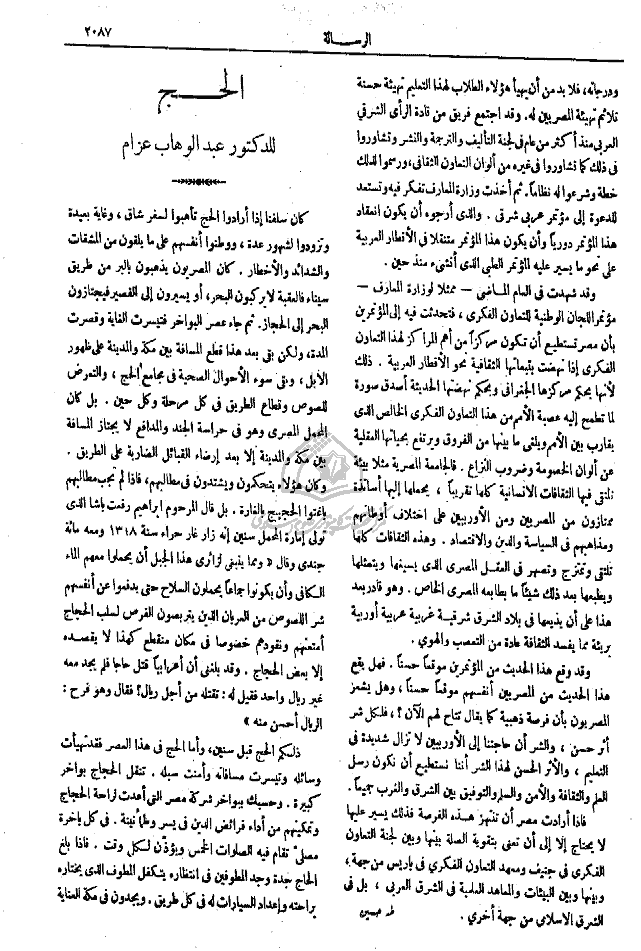 الرسالة
٢٠٨٧
ودرجاته، فلا بد من أن يهيأ هؤلاء الطلاب لهذا التعليم تهيئة حسنة
تلائم تهيئة المصريين له . وقد اجتمع فريق من قادة الرأى الشرقي
العربى منذ أكثر من عام فى لجنة التأليف والترجمة والنشر وتشاوروا
فى ذلك كما تشاوروا فى غيره من ألوان التعاون الثقافى، ورسموا لذلك
خطة وشرعوا له نظاماً. ثم أخذت وزارة المعارف تفكر فيه وتستعد
للدعوة إلى مؤتمر عربى شرقى . والذى أرجوه أن يكون انعقاد
هذا المؤتمر دورياً وأن يكون هذا المؤتمر متنقلا فى الأقطار العربية
على نحو ما يسير عليه المؤتمر الطبى الذى أنشىء منذ حين .
وقد شهدت فى العام الماضى — ممثلا لوزارة المعارف —
مؤتمر اللجان الوطنية للتعاون الفكرى ، فتحدثت فيه إلى المؤتمرين
بأن مصر تستطيع أن تكون مركزاً من أهم المراكز لهذا التعاون
الفكرى إذا نهضت بتبعاتها الثقافية نحو الأقطار العربية . ذلك
لأنها بحكم مركزها الجغرافى وبحكم نهضتها الحديثة أصدق صورة
لما تطمع إليه عصبة الأمم من هذا التعاون الفكرى الخالص الذى
يقارب بين الأمم ويلغى ما بينها من الفروق ويرتفع بحياتها العقلية
عن ألوان الخصومة وضروب النزاع . فالجامعة المصرية مثلا بيئة
تلتقى فيها الثقافات الانسانية كلها تقريباً ، يحملها إليها أساتذة
ممتازون من المصريين ومن الأوربيين على اختلاف أوطانهم
ومذاهبهم فى السياسة والدين والاقتصاد . وهذه الثقافات كلها
تلتقى وتمتزج وتصهر فى العقل المصرى الذى يسيغها ويتمثلها
ويطبعها بعد ذلك شيئاً ما بطابعه المصرى الخاص . وهو قادر بعد
هذا على أن يذيعها فى بلاد الشرق شرقية غربية عربية أوربية
بريئة مما يفسد الثقافة عادة من التعصب والهوى .
وقد وقع هذا الحديث من المؤتمرين موقعاً حسناً . فهل يقع
هذا الحديث من المصريين أنفسهم موقعاً حسناً ، وهل يشعر
المصريون بأن فرصة ذهبية كما يقال تتاح لهم الآن ؟ ، فلكل شر
أثر حسن ، والشر أن حاجتنا إلى الأوربيين لا تزال شديدة فى
التعليم ، والأثر الحسن لهذا الشر أننا نستطيع أن نكون رسل
العلم والثقافة والأمن والسلم والتوفيق بين الشرق والغرب جميعاً .
فاذا أرادت مصر أن تنتهز هذه الفرصة فذلك يسير عليها
لا يحتاج إلا إلى أن تعنى بتقوية الصلة بينها وبين لجنة التعاون
الفكرى فى جنيف ومعهد التعاون الفكرى فى باريس من جهة ،
وبينها وبين البيئات والمعاهد العلمية فى الشرق العربى ، بل فى
الشرق الاسلامى من جهة أخرى .
طه حسين
الحـــج
للدكتور عبد الوهاب عزام
كان سلفنا إذا أرادوا الحج تأهبوا لسفر شاق ، وغاية بعيدة
وتزودوا لشهور عدة ، ووطنوا أنفسهم على ما يلقون من المشقات
والشدائد والأخطار . كان المصريون يذهبون بالبر من طريق
سيناء فالعقبة لا يركبون البحر، أو يسيرون إلى القصير فيجتازون
البحر إلى الحجاز. ثم جاء عصر البواخر فتيسرت الغاية وقصرت
المدة، ولكن بقى بعد هذا قطع المسافة بين مكة والمدينة على ظهور
الأبل ، وبقى سوء الأحوال الصحية فى مجامع الحج ، والتعرض
للصوص وقطاع الطريق فى كل مرحلة وكل حين . بل كان
المحمل المصرى وهو فى حراسة الجند والمدافع لا يجتاز المسافة
بين مكة والمدينة إلا بعد إرضاء القبائل الضاربة على الطريق .
وكان هؤلاء يتحكمون ويشتدون فى مطالبهم، فاذا لم تجب مطالبهم
باغتوا الحجيج بالغارة . بل قال المرحوم ابراهيم رفعت باشا الذى
تولى إمارة المحمل سنين إنه زار غار حراء سنة ١٣١٨ ومعه مائة
جندى وقال « ومما ينبغى لزائرى هذا الجبل أن يحملوا معهم الماء
الكافى وأن يكونوا جماعاً يحملون السلاح حتى يدفعوا عن أنفسهم
شر اللصوص من العربان الذين يتربصون الفرص لسلب الحجاج
أمتعتهم ونقودهم خصوصا فى مكان منقطع كهذا لا يقصده
إلا بعض الحجاج . وقد بلغنى أن أعرابياً قتل حاجا فلم يجد معه
غير ريال واحد فقيل له : تقتله من أجل ريال؟ فقال وهو فرح :
الريال أحسن منه »
ذلكم الحج قبل سنين، وأما الحج فى هذا العصر فقد تهيأت
وسائله وتيسرت مسافاته وأمنت سبله . تنقل الحجاج بواخر
كبيرة . وحسبك ببواخر شركة مصر التى أعدت لراحة الحجاج
وتمكينهم من أداء فرائض الدين فى يسر وطمأنينة . فى كل باخرة
مصلىً تقام فيه الصلوات الخمس ويؤذَّن لكل وقت . فاذا بلغ
الحاج جدة وجد المطوفين فى انتظاره يتكفل المطوف الذى يختاره
براحته وإعداد السيارات له فى كل طريق . ويجدون فى مكة العناية